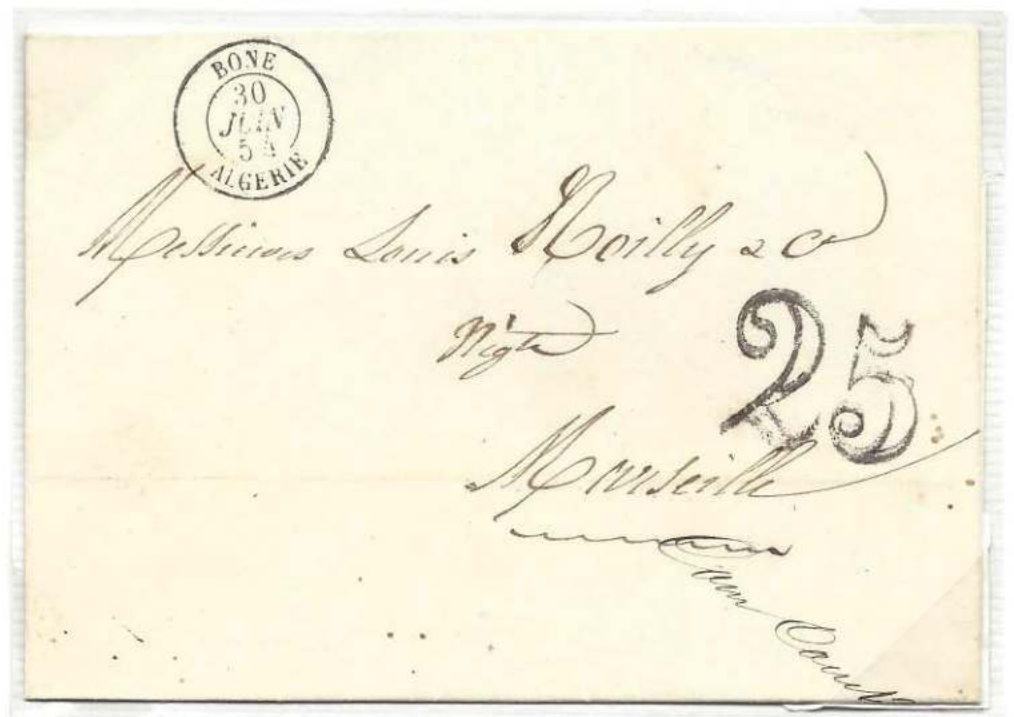 BONE
30
JUIN
54
ALGERIE
Messieurs Louis Noilly & Co
Négts
25
Marseille